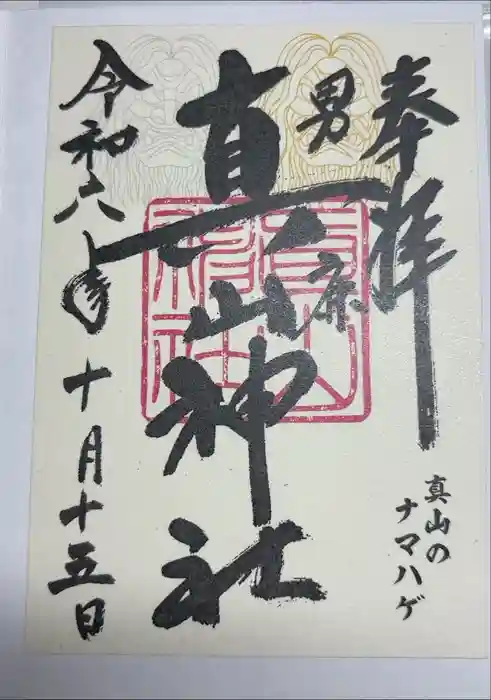 奉拝
真山の
ナマハゲ
男鹿
真山神社
令和六年十月十五日